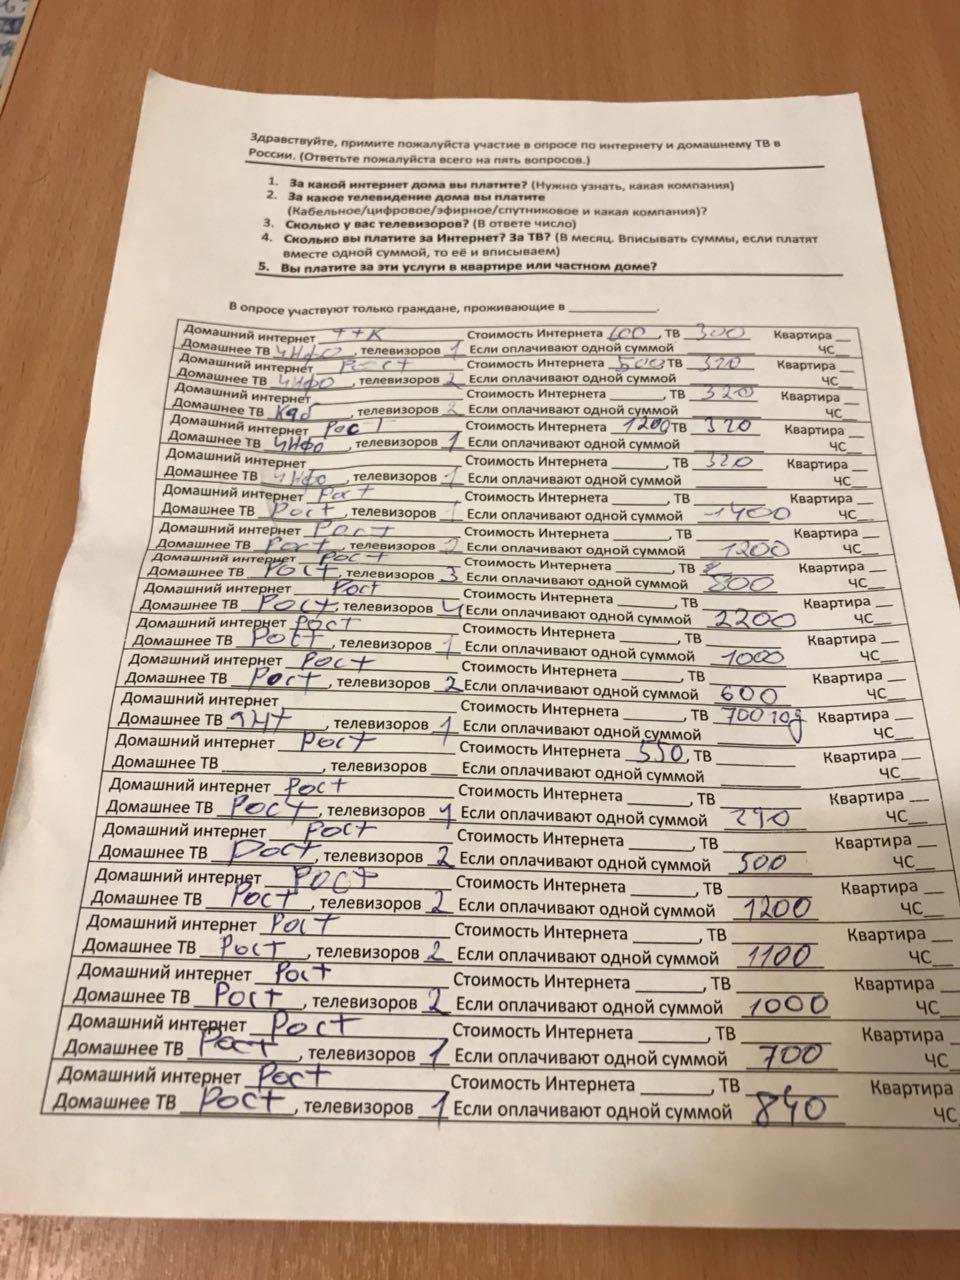 Здравствуйте, примите пожалуйста участие в опросе по интернету и домашнему ТВ в
России. (Ответьте пожалуйста всего на пять вопросов.)
1. За какой интернет дома вы платите? (Нужно узнать, какая компания)
2. За какое телевидение дома вы платите
(Кабельное/цифровое/эфирное/спутниковое и какая компания)?
3. Сколько у вас телевизоров? (В ответе число)
4. Сколько вы платите за Интернет? За ТВ? (В месяц. Вписывать суммы, если платят
вместе одной суммой, то её и вписываем)
5. Вы платите за эти услуги в квартире или частном доме?
В опросе участвуют только граждане, проживающие в ____________.
Домашний интернет ТТК Стоимость Интернета 600, ТВ 300 Квартира __
Домашнее ТВ Инфо, телевизоров 1 Если оплачивают одной суммой ЧС__
Домашний интернет Рост Стоимость Интернета 500 ТВ 320 Квартира __
Домашнее ТВ Инфо, телевизоров 2 Если оплачивают одной суммой ЧС__
Домашний интернет Стоимость Интернета ______, ТВ 320 Квартира __
Домашнее ТВ Каб, телевизоров 2 Если оплачивают одной суммой ЧС__
Домашний интернет Рост Стоимость Интернета 1200 ТВ 320 Квартира __
Домашнее ТВ Инфо, телевизоров 1 Если оплачивают одной суммой ЧС__
Домашний интернет Стоимость Интернета ______, ТВ 320 Квартира __
Домашнее ТВ Инфо, телевизоров 1 Если оплачивают одной суммой ЧС__
Домашний интернет Рост Стоимость Интернета ______, ТВ Квартира __
Домашнее ТВ Рост, телевизоров 1 Если оплачивают одной суммой 1400 ЧС__
Домашний интернет Рост Стоимость Интернета ______, ТВ Квартира __
Домашнее ТВ Рост, телевизоров 2 Если оплачивают одной суммой 1200 ЧС__
Домашний интернет Рост Стоимость Интернета ______, ТВ Квартира __
Домашнее ТВ Рост, телевизоров 3 Если оплачивают одной суммой 800 ЧС__
Домашний интернет Рост Стоимость Интернета ______, ТВ Квартира __
Домашнее ТВ Рост, телевизоров 4 Если оплачивают одной суммой 2200 ЧС__
Домашний интернет Рост Стоимость Интернета ______, ТВ Квартира __
Домашнее ТВ Рост, телевизоров 1 Если оплачивают одной суммой 1000 ЧС__
Домашний интернет Рост Стоимость Интернета ______, ТВ Квартира __
Домашнее ТВ Рост, телевизоров 2 Если оплачивают одной суммой 600 ЧС__
Домашний интернет Стоимость Интернета ______, ТВ 700 год Квартира __
Домашнее ТВ, телевизоров 1 Если оплачивают одной суммой ЧС__
Домашний интернет Рост Стоимость Интернета 550, ТВ Квартира __
Домашнее ТВ ________, телевизоров ___ Если оплачивают одной суммой ЧС__
Домашний интернет Рост Стоимость Интернета ______, ТВ Квартира __
Домашнее ТВ Рост, телевизоров 1 Если оплачивают одной суммой 290 ЧС__
Домашний интернет Рост Стоимость Интернета ______, ТВ Квартира __
Домашнее ТВ Рост, телевизоров 2 Если оплачивают одной суммой 500 ЧС__
Домашний интернет Рост Стоимость Интернета ______, ТВ Квартира __
Домашнее ТВ Рост, телевизоров 2 Если оплачивают одной суммой 1200 ЧС__
Домашний интернет Рост Стоимость Интернета ______, ТВ Квартира __
Домашнее ТВ Рост, телевизоров 2 Если оплачивают одной суммой 1100 ЧС__
Домашний интернет Рост Стоимость Интернета ______, ТВ Квартира __
Домашнее ТВ Рост, телевизоров 2 Если оплачивают одной суммой 1000 ЧС__
Домашний интернет Рост Стоимость Интернета ______, ТВ Квартира __
Домашнее ТВ Рост, телевизоров 1 Если оплачивают одной суммой 700 ЧС__
Домашний интернет Рост Стоимость Интернета ______, ТВ Квартира
Домашнее ТВ Рост, телевизоров 1 Если оплачивают одной суммой 840 ЧС